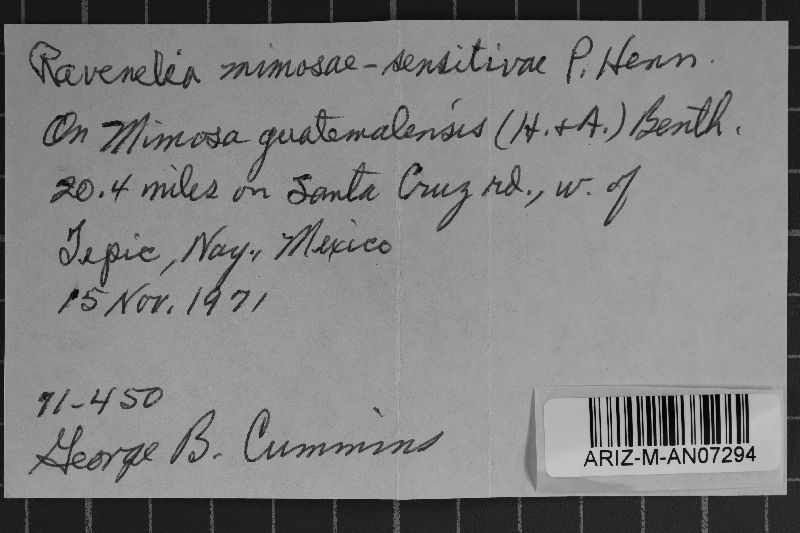 Ravenelia mimosae-sensitivae P. Henn.
On Mimosa guatemalensis (H. & A.) Benth.
20.4 miles on Santa Cruz rd., w. of
Tepic, Nay., Mexico
15 Nov. 1971
71-450
George B. Cummins
ARIZ-M-AN07294